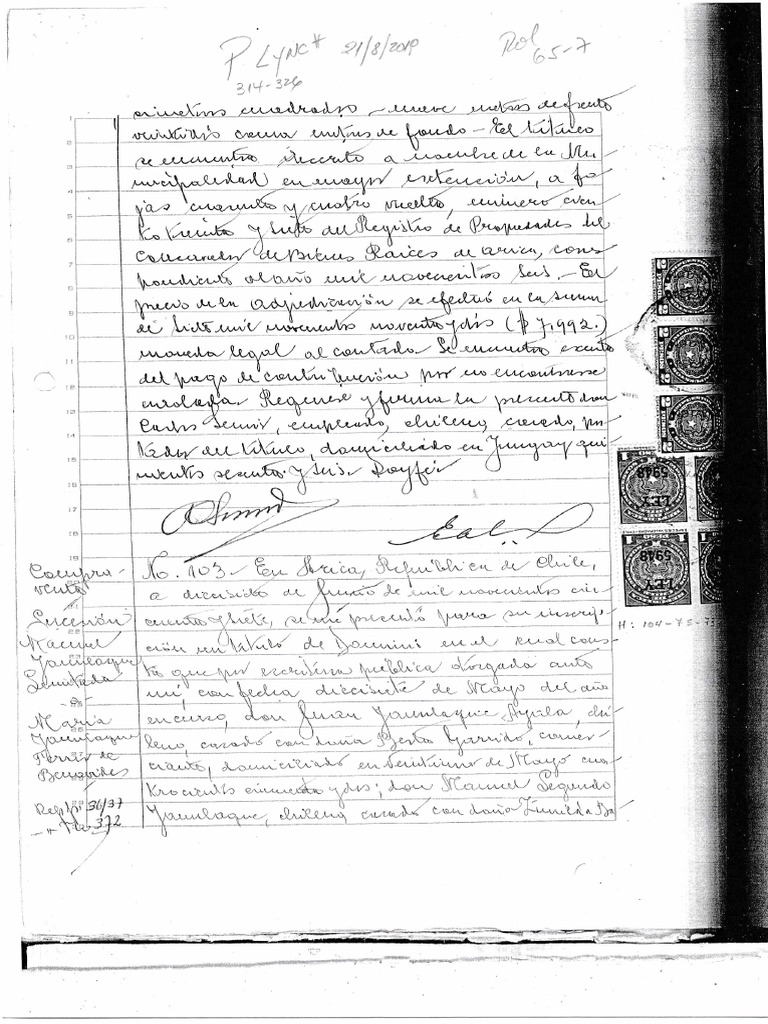 P. LYNCH 21/8/2019 Rol
314-324 65-7
cimetros cuadrados - nueve metros de frente
veintidós coma metros de fondo - El título
se encuentra inscrito a nombre de la Mu-
nicipalidad en mayor extención, a fo-
jas cuarenta y cuatro vuelta, número cien-
to treinta y siete del Registro de Propiedades del
Conservador de Bienes Raíces de Arica, corres-
pondiente al año mil novecientos seis. - El
precio de la adjudicación se efectuó en la suma
de siete mil novecientos noventa y dos ($ 7,992.)
moneda legal al contado. Se encuentra exento
del pago de contribución por no encontrarse
enrolada. Requiere y firma la presente don
Carlos , empleado, chileno, casado, por-
tador del título, domiciliado en Yungay qui-
nientos sesenta y seis. Doy fe
Compra-
venta
Sucesión
Manuel
Yanulaque
Semitada
a
María
Yanulaque
de
Benavides
Rept. Nº 36/37
372
No. 103 - En Arica, República de Chile,
a dieciséis de Junio de mil novecientos cin-
cuenta y siete, se me presentó para su inscrip-
ción un título de Dominio en el cual cons-
ta que por escritura pública otorgada ante
mí, con fecha diecisiete de Mayo del año
en curso, don Juan Yanulaque Ayala, chi-
leno, casado con doña Berta Garrido, comer-
ciante, domiciliado en Veintiuno de Mayo cua-
trocientos cincuenta y dos; don Manuel Segundo
Yanulaque, chileno casado con doña Zunilda Ba
LEY
5948
LEY
5948
H: 104-75-73